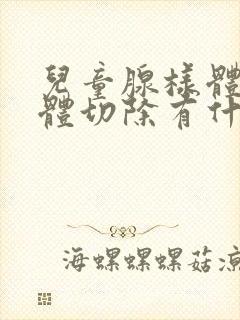 兒童腺樣體
體切除有什
海螺螺螺菇涼